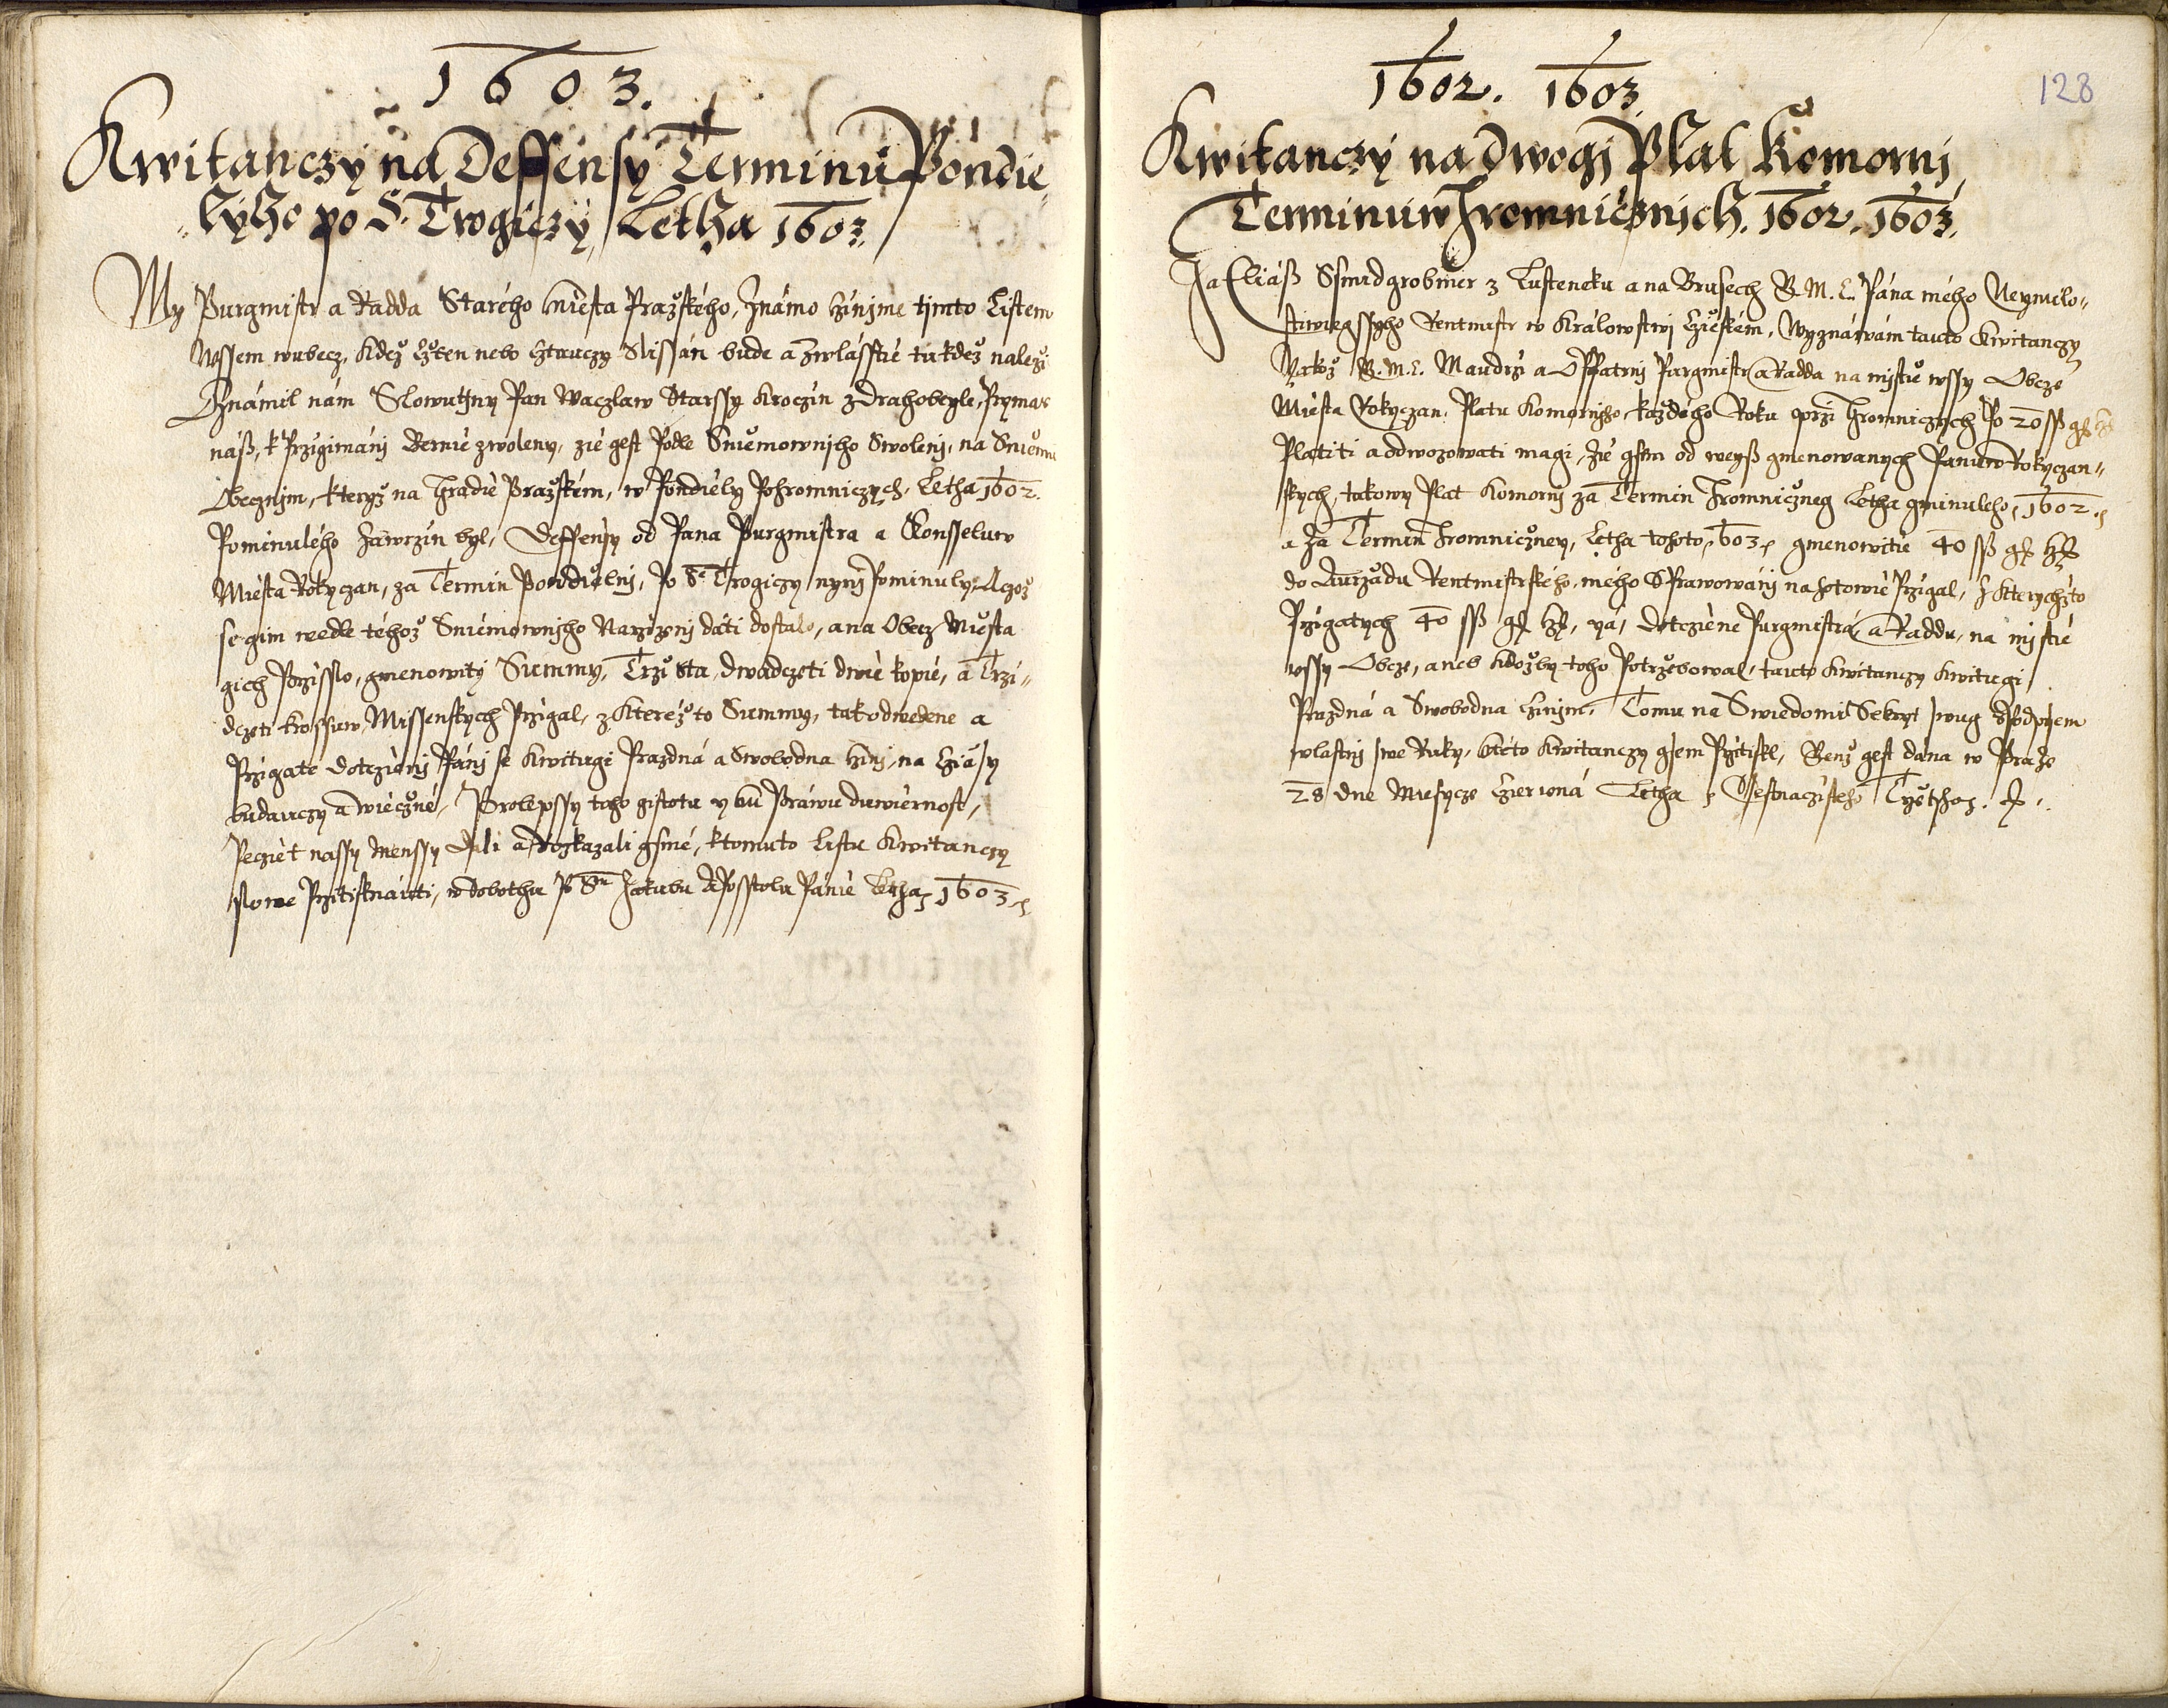 1603.
Kwitanczy na Deffensy Terminu Pondie„
„lyho po S. Trogiczy Letha 1603.
My Purgmistr a Radda Starého Miesta Pražského, Známo činjme tjmto Listem
Wssem wubecz, Kdež čten nebo čtauczy Slissán bude a Zwlásstie tu kdež należi
Oznámil nám Slowutny Pan Waczlaw Starssy Kroczin z Drahobeyle, Prymas
náß, k Przigimánj Bernie zwoleny, zie gest Podle Sniemownjho Swolenj, na Sniemu
Obecznjm, kteryž na Hradie Pražském, w Pondiely Pohromniczych, Letha 1602.
Pominulého Zawrzin byl, Deffensy od Pana Purgmistra a Konsseluw
Miesta Rokyczan, za Termin Pondielnj, Po S. Trogiczy nynj Pominuly, Aczož
se gim wedle téhož Sniemownjho Narzizenj dáti dostalo, a na Obecz Miesta
gich Przisslo, gmenowitý Summy, Trzi Sta dwadczeti dwie kopie, a Trzi„
dczeti Grossuw Missenskych Przigal, z Kteréž to Summy, tak odwedene a
Przigaté Dotczienj Pánj se Kwitugi Prazdná a Swobodna čzinj, na čziasy
budauczy a wiečzné, Pro lepssy toho gistotu y bu Práwu duwiernost,
Peczet nassy Menssy Dali a Rozkazali gsme, k tomuto listu Kwitanczy
slowe Przitisknauti, w Sobothu Po Sm Jakubu Apostolu Pánie Letha 1603.
1602. 1603
128
Kwitanczy na Dwogj Plat Komornj
Terminuw Hromnicznich. 1602. 1603.
Ja Eliáß Ssmidgrobner z Lusteneku a na Brusech G. M. C. Pána mého Neymilo„
stiwiegssyho Rentmistr w Králowstwj čzieském, Wyznáwám tauto Kwitanczy
Jakož G. M. C. Maudrzi a Opatrnj Purgmistr a Radda na mjstie wssy Obcze
Miesta Rokyczan, Platu Komornjho, každého Roku przi Hromniczych Po 20 ssß
Platiti a odwozowati magi, Zie gsem od weyß gmenowanych Panuw Rokyczan„
skych, takowy Plat Komornj za Termin Hromnicžney Letha gminuleho, 1602.
a Za Termin Hromnicžney, Letha tohoto 1603. gmenowitie 40 ssß
do Aurzadu Rentmistrského, mého Sprawowánj na hotowie Przigal, z Kterychžto
Przigatych 40 ssß Dotcziene Purgmistrá, a Raddu, na mjstie
wssy Obcze, aneb Kdožby toho Potržebowal, tauto Kwitanczy Kwitugi
Prazdná a Swobodna čzinjm, Tomu na Swiedomi Sekryt swug s Podpisem
wlastnj swe Ruky, k této Kwitanczy gsem Przitiskl, Genž gest dana w Praze
28 dne Miesycze čzierwná Letha Ssestnacztistého Tržetjho.